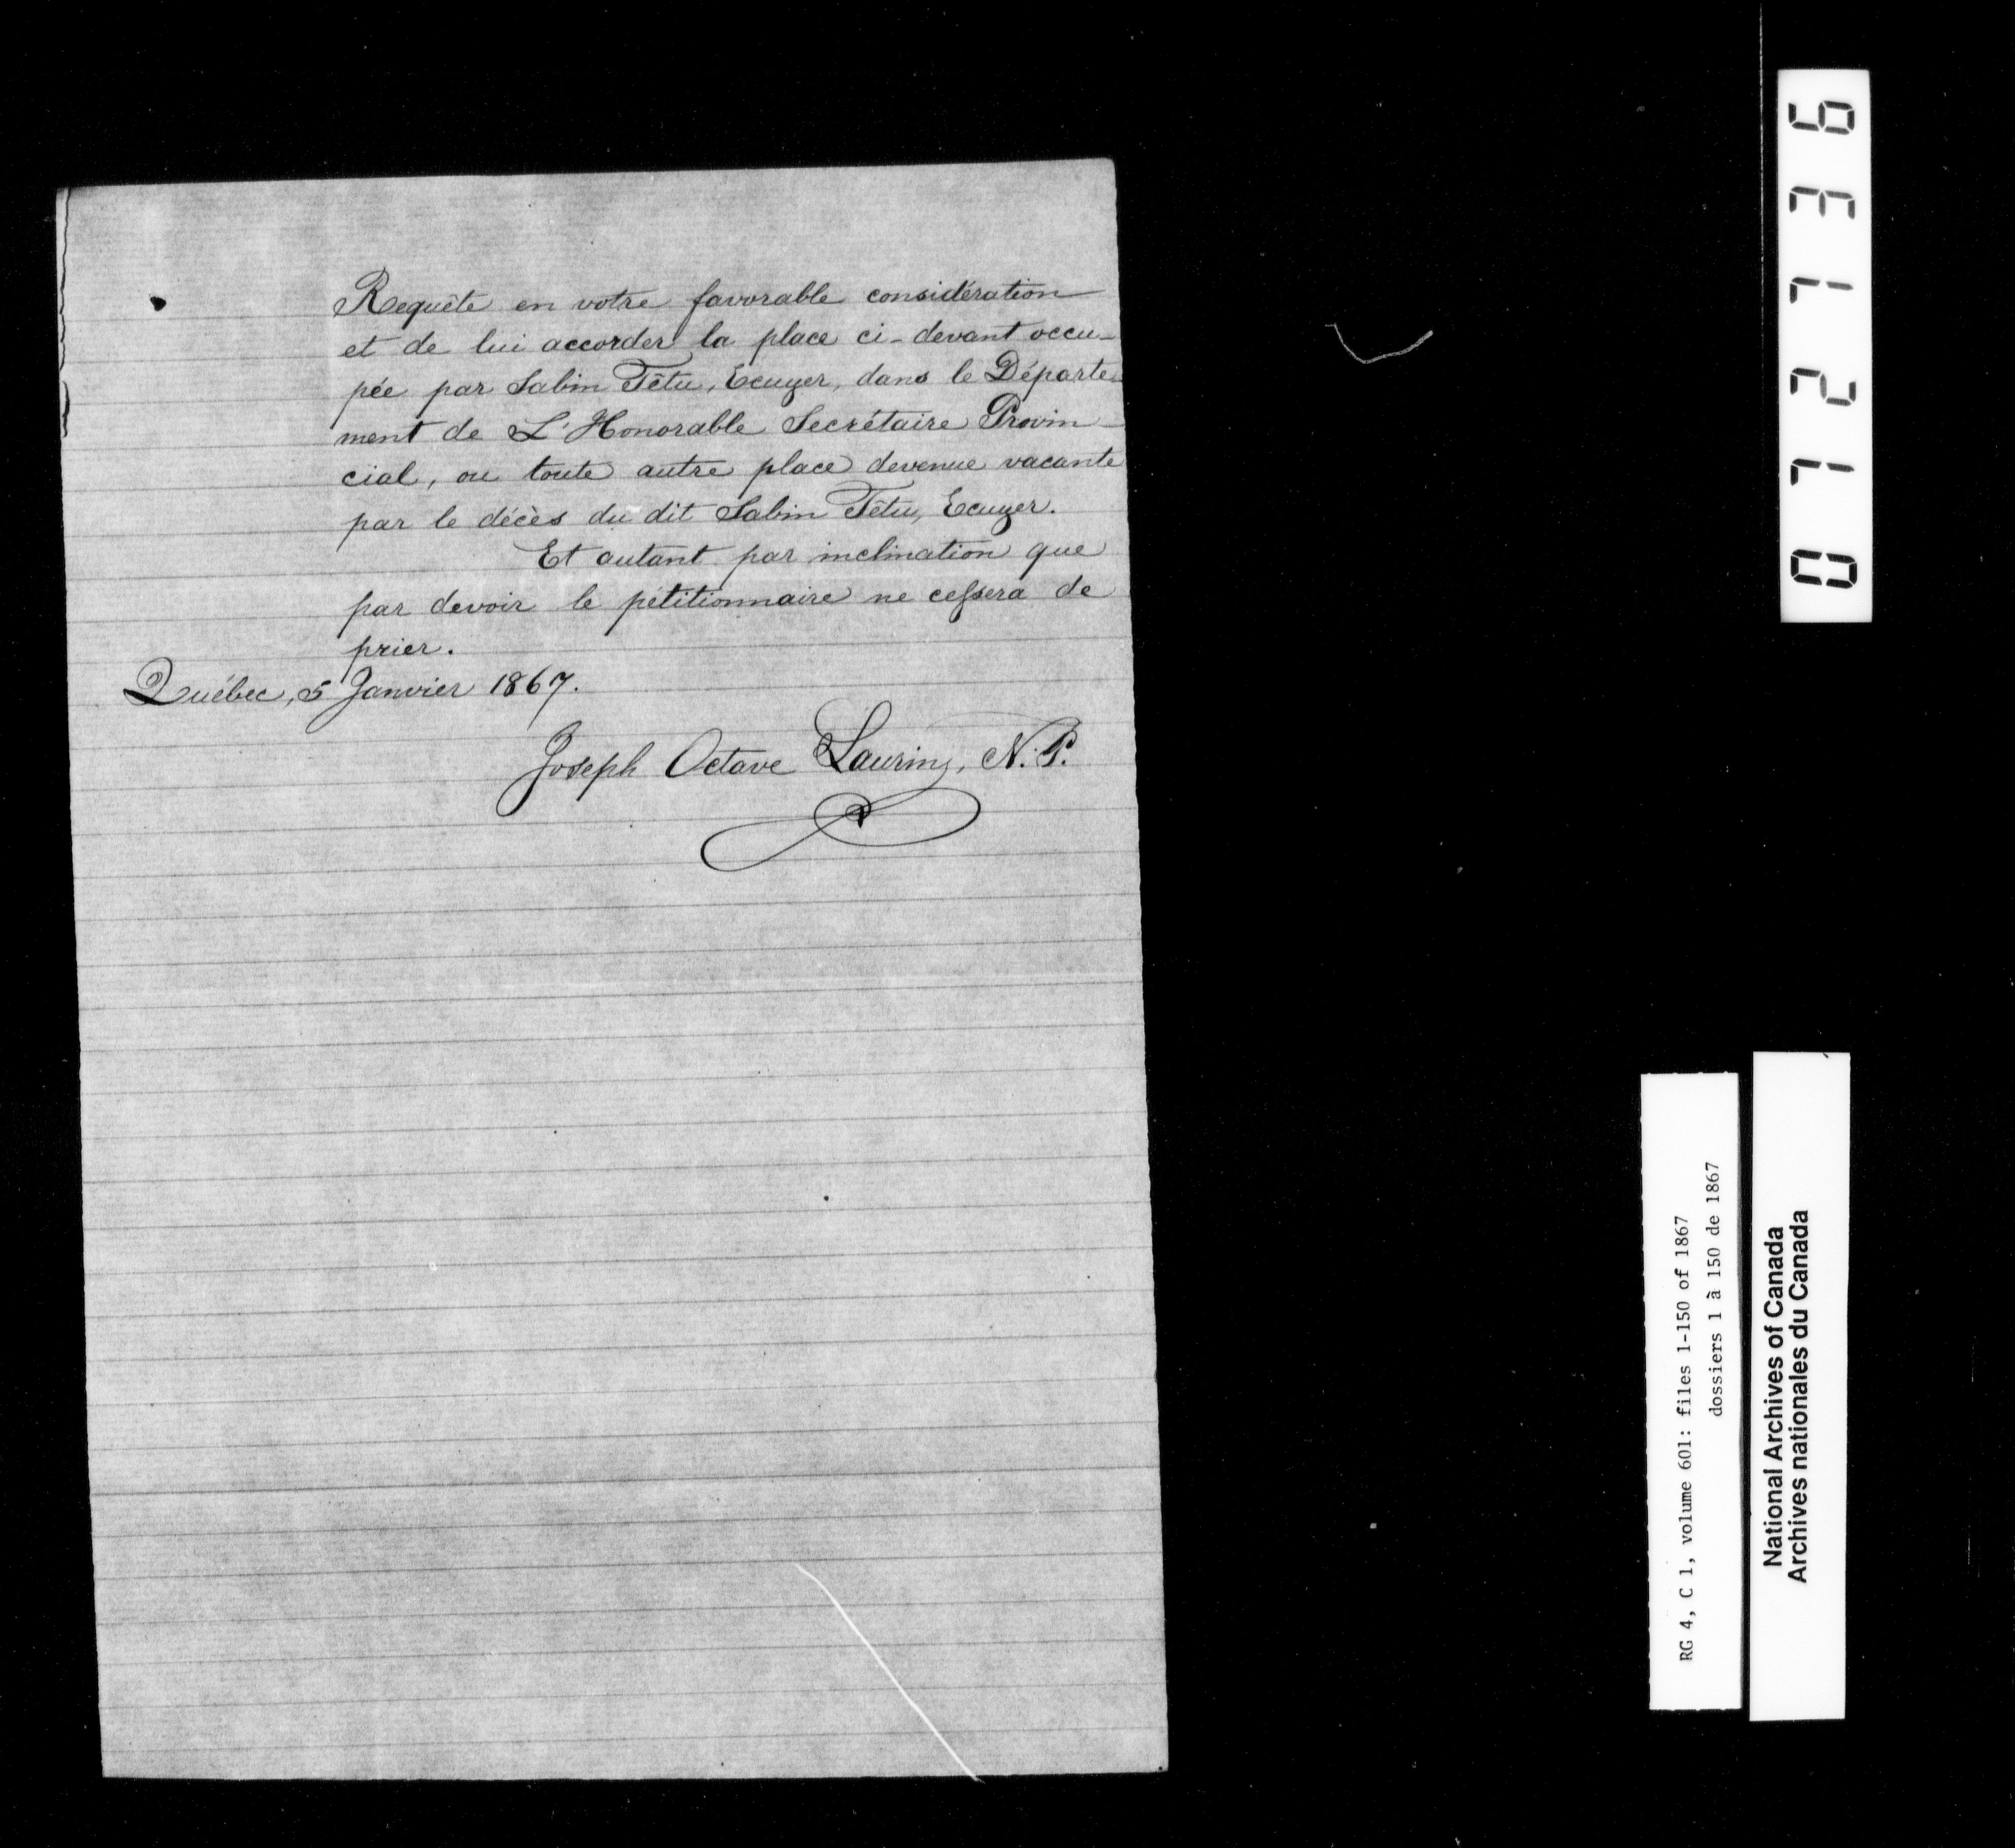 Requête en votre favorable considération
et de lui accorder la place ci-devant occu-
pée par Sabin Têtu, Ecuyer, dans le Départe-
ment de L'Honorable Secrétaire Provin-
cial, ou toute autre place devenue vacante
par le décès du dit Sabin Têtu, Ecuyer.
Et autant par inclination que
par devoir le pétitionnaire ne cessera de
prier.
Québec, 5 Janvier 1867.
Joseph Octave Laurin, N. P.
072736
RG 4, C 1, volume 601: files 1-150 of 1867
dossiers 1 à 150 de 1867
National Archives of Canada
Archives nationales du Canada